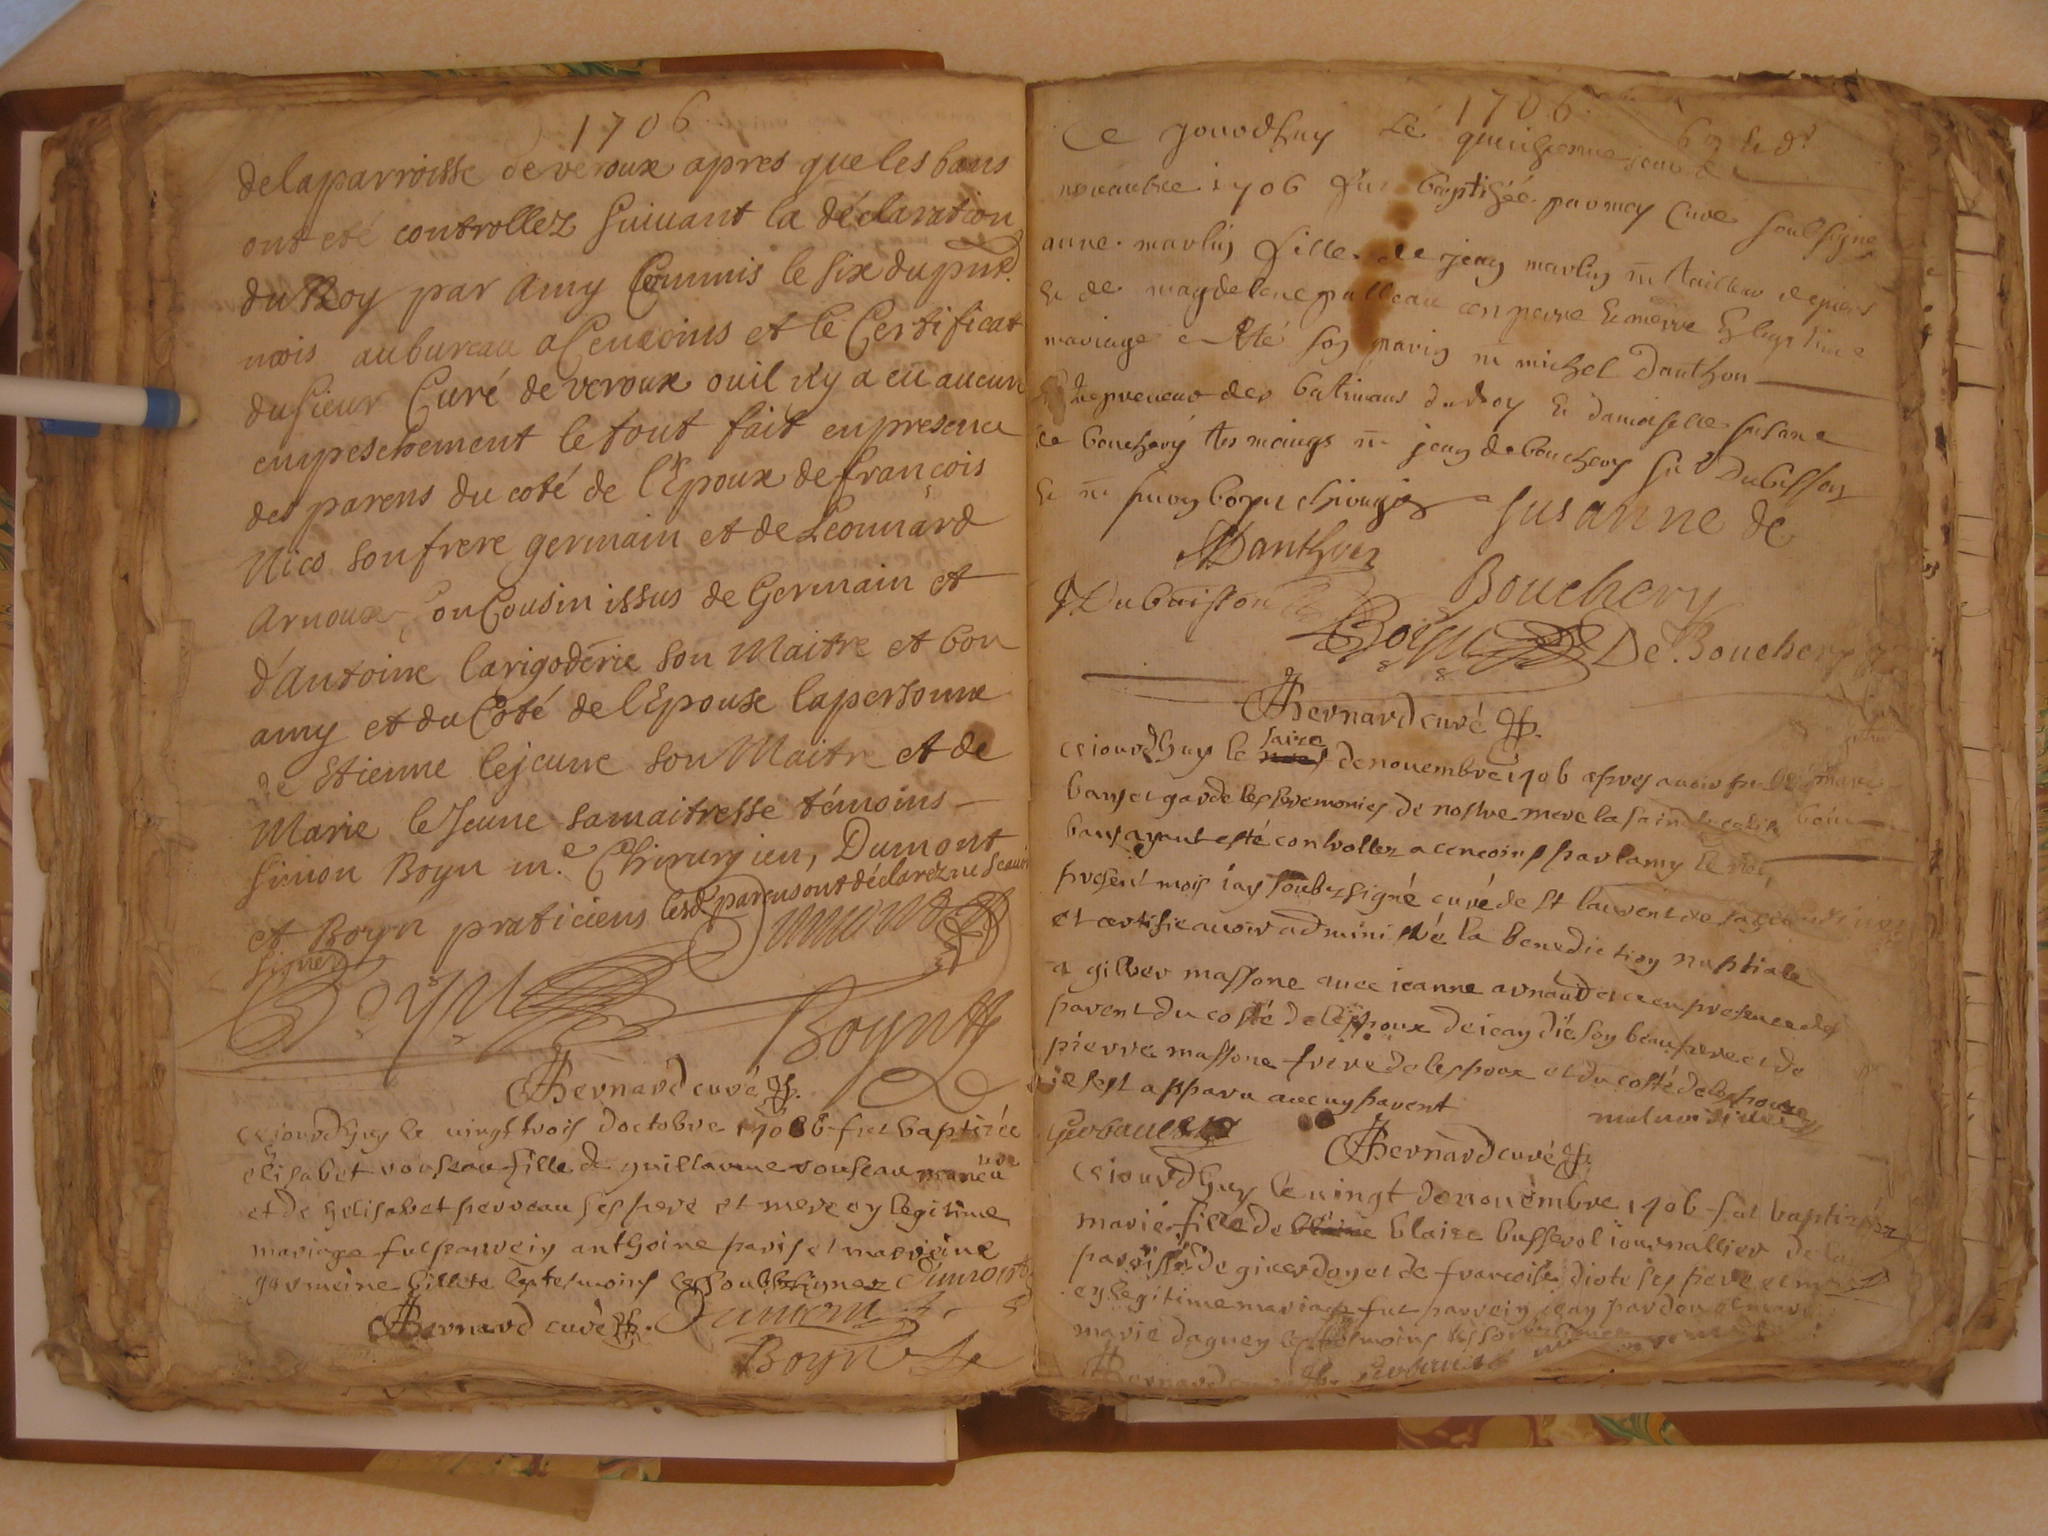 1706
de la parroisse de veroux apres que les bans
ont eté controllez suivant la déclaration
du Roy par Amy Commis le six du pnt
mois au bureau a Cencoins et le Certificat
du sieur Curé de veroux ou il n'y a eu aucun
empeschement le tout fait en presence
des parens du coté de l'Epoux de francois
Nico son frere germain et de Leonnard
Arnoux son Cousin issus de Germain et
d'Antoine larigoderie son Maitre et bon
amy et du Coté de l'Epouse la personne
de Etienne lejeune son Maitre et de
Marie le Jeune sa maitresse témoins
simon Boyn me. Chirurgien, Dumont
et Boyn praticiens lesd parens ont déclaréz ne scavoir
signer Dumont
Boyn Boyn
Bernard curé
ce iourdhuy le uingt trois doctobre 1706 fut baptizée
elisabet rouseau fille de guillaume rouseau
et de helisabet perreau ses pere et mere en legitime
mariage fut parrein anthoine paris et marreine
germeine billete les tesmoins les soubsignez Dumont
Bernard curé Dumont
Boyn
1706
Ce jourdhuy Le
novambre 1706 fut baptizée par moy Cure soubsigné
anne marlin fille de jean marlin me tailleur
& de magdelene con perre & merre
mariage a été son parin me michel Danthon
preneur des batimans du Roy & damoiselle susane
de bouchery tes moings me jean de bouchery sr Dubisson
& me simon boyn chirugien Susanne de
Danthon Bouchery
Dubaisson Boyn De Bouchery
Bernard curé
ce iourdhuy le saize de nouembre 1706 apres auoir
bans et gardé les seremonies de nostre mere la sainte
bans ayant esté controllez a cencoins par lamy le
present mois iay soubssigné curé de st laurent de
et certifie auoir administré la benediction nuptiale
a gilber massone auec ieanne arnaud et ce en presence des
parent du costé de lespoux de iean dié son beau frere et de
pierre massone frere de lespoux et du costé de lespouze
ne sest apparu aucun parent
Gerbault
Bernard curé
ce iourdhuy le uingt de nouembre 1706 fut baptizée
marie fille de blaize busserol iournallier de la
paroisse de giverdon et de francoise diote ses pere et mere
en legitime mariage fut parrein iean pardou et
marie daguen les tesmoins
Bernard curé Gerbault